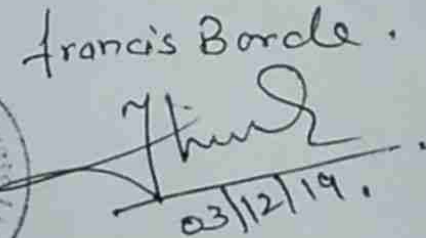 francis Borde.
03/12/19.